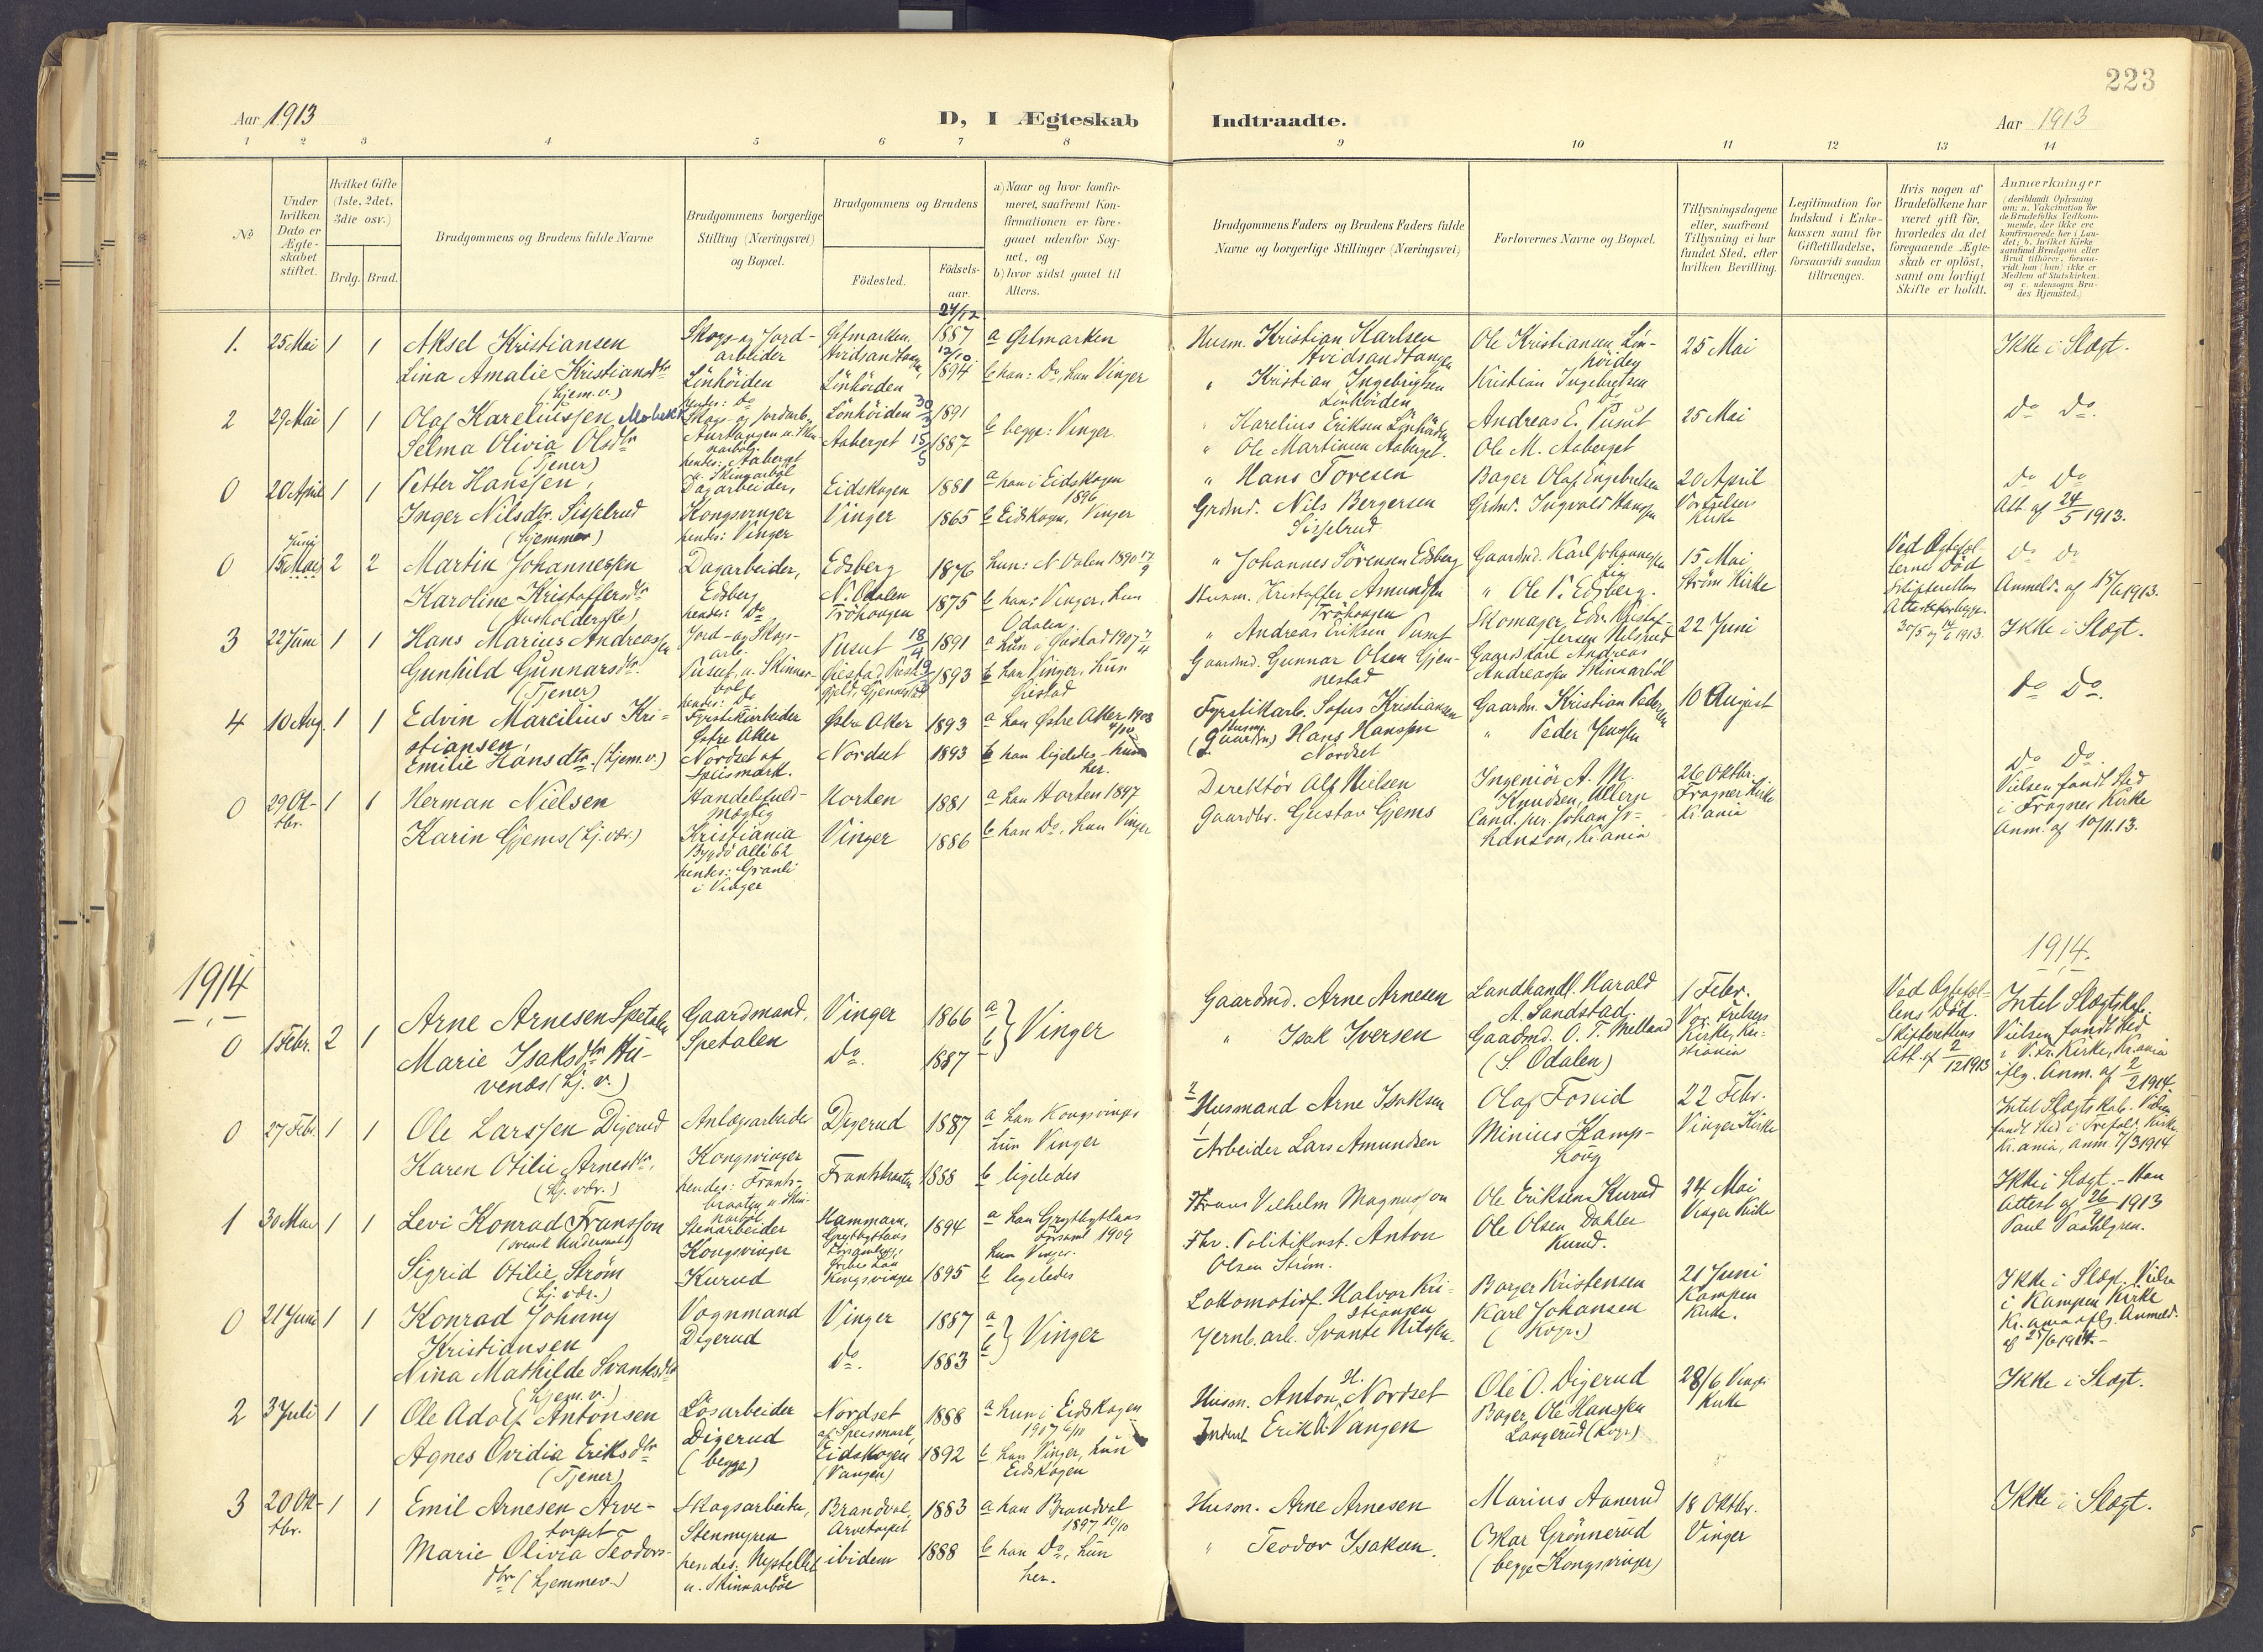 223
Aar 1913
D, I Ægteskab Indtraadte.
Aar 1913
1 2 3 4 5 6 7 8 9 10 11 12 13 14
No
Under hvilken Dato er Ægteskabet stiftet.
Hvilket Gifte (1ste, 2det, 3die osv.)
Brdg. Brud.
Brudgommens og Brudens fulde Navne
Brudgommens borgerlige Stilling (Næringsvei) og Bopæl.
Brudgommens og Brudens
Fødested.
Fødsels-aar.
a) Naar og hvor konfir-
meret, saafremt Kon-
firmationen er fore-
gaaet udenfor Sog-
net, og
b) hvor sidst gaaet til
Alters.
Brudgommens Faders og Brudens Faders fulde
Navne og borgerlige Stillinger (Næringsvei)
Forlovernes Navne og Bopæl.
Tillysningsdagene
eller, saafremt
Tillysning ei har
fundet Sted, efter
hvilken Bevilling.
Legitimation for
Indskud i Enke-
kassen samt for
Giftetilladelse,
forsaavidt saadan
tiltrænges.
Hvis nogen af
Brudefolkene har
været gift før,
hvorledes da det
foregaaende Ægte-
skab er opløst,
samt om lovligt
Skifte er holdt.
Anmærkninger
(deriblandt Oplysning
om: a. Vakcination for
de Brudefolks Vedkom-
mende, der ikke ere
konfirmerede her i Lan-
det; b. hvilket Kirke
samfund Brudgom eller
Brud tilhører, forsaa-
vidt han (hun) ikke er
Medlem af Statskirken.
og c. udensogns Bru-
des Hjemsted.)
1. 25 Mai 1 1 Aksel Kristiansen
Skogs- og Jord-
arbeider
Lönhöiden
24/12 1887
a Østmarken
Husm. Kristian Karlsen
Ole Kristiansen Lön-
höiden
25 Mai
Ikke i Slægt.
Lina Amalie Kristiansdtr
(hjem.v.)
hendes: Do
Lönhöiden
12/10 1894
b han: Do, hun Vinger
" Kristian Ingebrigtsen
Lönhöiden
Kristian Ingebretsen
Do
2 29 Mai 1 1 Olaf Kareliussen
Skogs- og jordarb.
Lönhöiden 30/3 1891
b begge: Vinger
" Karelius Eriksen Lönhöiden
Andreas E. Pusut
25 Mai
Do Do.
Selma Olivia Olsdtr
(Tjener)
hendes: Aaberget
u. Skinnarböl
Aaberget 15/5 1887
" Ole Martinsen Aaberget.
Ole M. Aaberget
0 20 April 1 1 Petter Hanssen,
Dagarbeider,
Kongsvinger
Eidskogen 1881
a han i Eidskogen
1896
" Hans Toresen
Bager Olaf Engebretsen
20 April
Vor Frelsers
Kirke
Do Do
Att. af 24/5 1913.
Inger Nilsdtr. Sisselrud
(hjemmev)
hendes: Vinger
Vinger 1865
b Eidskogen, Vinger
Grdmd. Nils Bergersen
Sisselrud
Grdmd. Ingvald Hanssen
0 Juni
15 Mai 2 2 Martin Johannessen
Dagarbeider,
Edsberg
Edsberg 1876
hun: N. Odalen 1890 17/9
" Johannes Sörensen Edsberg
Gaardmd. Karl Johannessen
15 Mai
Ström Kirke
Ved Ægtefæl-
lernes Död
Skifterettens
Attester for begge
30/5 og 14/6 1913.
Do Do
Anmeld. af 15/6 1913.
Karoline Kristoffersdtr
(Husholderske)
hendes: Do
N. Odalen
Tröhougen 1875
b han: Vinger, hun
Odalen
Husm. Kristoffer Amundsen
Tröhougen
" Ole P. Edsberg.
3 22 Juni 1 1 Hans Marius Andreassen
Jord- og Skogs-
arb.
Pusut, u. Skinnar-
böl
Pusut 18/4 1891
" Andreas Eriksen Pusut
Skomager Edv. Kristof-
fersen Nelsrud
22 Juni
Ikke i Slægt.
Gunhild Gunnarsdtr.
(Tjener)
hendes: Do
1893
b han Vinger, hun
Gjestad
Gaardmd. Gunnar Olsen Gjen-
nestad
Gaardk. Karl Andreas
Andreassen Skinnarböl
4 10 Aug. 1 1 Edvin Marcilius Kri-
stiansen,
Fyrstikarbeider
Østre Aker
Østre Aker 1893
a han Østre Aker 1908
Fyrstikarb. Sofus Kristiansen
Gaardm. Kristian Pedersen
10 August
Do Do.
Emilie Hansdtr. (hjem.v.)
Nordset af
Speismark.
Nordset 1893
b han ligeledes hun
her.
Husm.
(Gaardm) Hans Hanssen
Nordset
" Peder Jenssen
0 29 Ok-
tbr. 1 1 Herman Nielsen
Handelsfuld-
mægtig
Kristiania
Bygdö Alle 62
Horten 1881
a han Horten 1897
Direktör Alf Nielsen
Ingeniör A. M.
Knudsen, Ullern
26 Oktbr.
Frogner Kirke
Kr.ania
Do Do.
Vielsen fandt Sted
i Frogner Kirke
Anm. af 10/11.13.
Karin Gjems (hj. vær.)
hendes: Granli
i Vinger
Vinger 1886
b han Do, hun Vinger
Gaardbr. Gustav Gjems
Cand. jur. Johan Jo-
hanson, Kr.ania
1914
1914.
0 1 Febr. 2 1 Arne Arnesen Spetalen
Gaardmand,
Spetalen
Vinger 1866
a
b } Vinger
Gaardmd. Arne Arnesen
Landhandl. Harald
A. Sandstad.
1 Febr.
Vor Frelsers
Kirke, Kri-
stiania
Ved Ægtefæl-
lens Död.
Skifterettens
Att. af 2/12 1913
Intet Slægtskab.
Vielsen fandt Sted
i V. Fr. Kirke, Kr.ania
iflg. Anm. af 2/2 1914.
Marie Isaksdtr Hu-
venæs (hj. v.)
Do. 1887
" Isak Iversen
Gaardmd. O. T. Melland
(S. Odalen)
0 27 Febr. 1 1 Ole Larssen Digerud
Anlægsarbeider
Kongsvinger
Digerud 1887
a han Kongsvinger
hun Vinger
2 Husmand Arne Isaksen
Olaf Foseid
22 Febr.
Vinger Kirke
Intet Slægtskab. Vielsen
fandt Sted i Trefold. Kirke
Kr.ania, anm. 7/3 1914
Karen Otilie Arnesdtr,
(hj. vær.)
hendes: Frants-
braaten u. Skin-
narböl.
Frantsbraaten 1888
b ligeledes
1 Arbeider Lars Amundsen
Minius Kamp-
houg
1 30 Mai 1 1 Levi Konrad Fransson
(svensk Undersaat)
Stenarbeider
Kongsvinger
Hammarn,
Grythyttans
Församling,
Örebro Län 1894
a han Grythyttans
Församl 1909
hun Vinger.
Frans Vilhelm Magnusson
Ole Eriksen Kurud
24 Mai
Vinger Kirke
Ikke i Slægt. - Han
Attest af 26/9 1913
Sigrid Otilie Ström
(hj. vær.)
Kurud
Kongsvinger 1895
b ligeledes
Fhv. Politikonst. Anton
Olsen Ström.
Ole Olsen Dahler
Kurud.
0 21 Juni 1 1 Konrad Johnny
Kristiansen
Vognmand
Digerud
Vinger 1887
a
b } Vinger
Lokomotivf. Halvor Kri-
stiansen
Borger Kristensen
21 Juni
Kampen
Kirke.
Ikke i Slægt. Vielse
i Kampen Kirke
Kr.ania iflg. Anmeld.
af 25/6 1914.-
Nina Mathilde Svantesdtr
(hjem. v.)
Do. 1883
Jernb. arb. Svante Nilssen
Karl Johansen
(Kgv.)
2 3 Juli 1 1 Ole Adolf Antonsen
Lösarbeider
Digerud
(begge)
Nordset
af Speismark, 1888
a hun i Eidskogen
1907 6/10
Husm. Anton H. Nordset
Ole O. Digerud
28/6 Vinger
Kirke
Ikke i Slægt.
Agnes Ovidia Eriksdtr
(Tjener)
Eidskogen
(Vangen) 1892
b han Vinger, hun
Eidskogen
Erik A. Vangen
Bager Ole Hanssen
Langerud (Kgv.)
3 20 Ok-
tbr. 1 1 Emil Arnesen Arve-
torpet
Skogsarbeider,
Stenmyren
Brandval,
Arvetorpet 1883
a han Brandval
1897 10/10
Husm. Arne Arnesen
Marius Aanerud
18 Oktbr.
Vinger
Ikke i Slægt.
Marie Olivia Teodors-
dtr (hjemmev.)
hendes: Nystellet
u. Skinnarböl
ibidem 1888
b han Do, hun
her.
" Teodor Isaksen.
Oskar Grönnerud
(begge Kongsvinger)